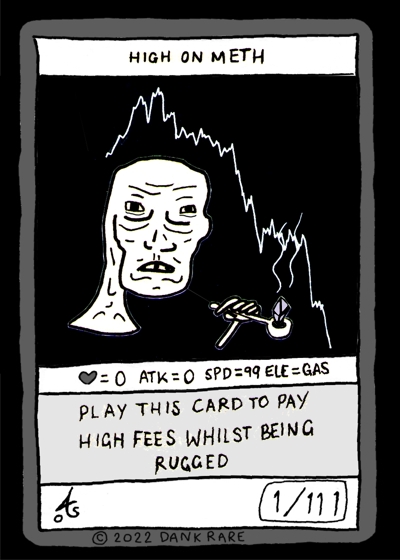 HIGH ON METH
♥=0 ATK=0 SPD=99 ELE=GAS
PLAY THIS CARD TO PAY
HIGH FEES WHILST BEING
RUGGED
1/111
© 2022 DANK RARE